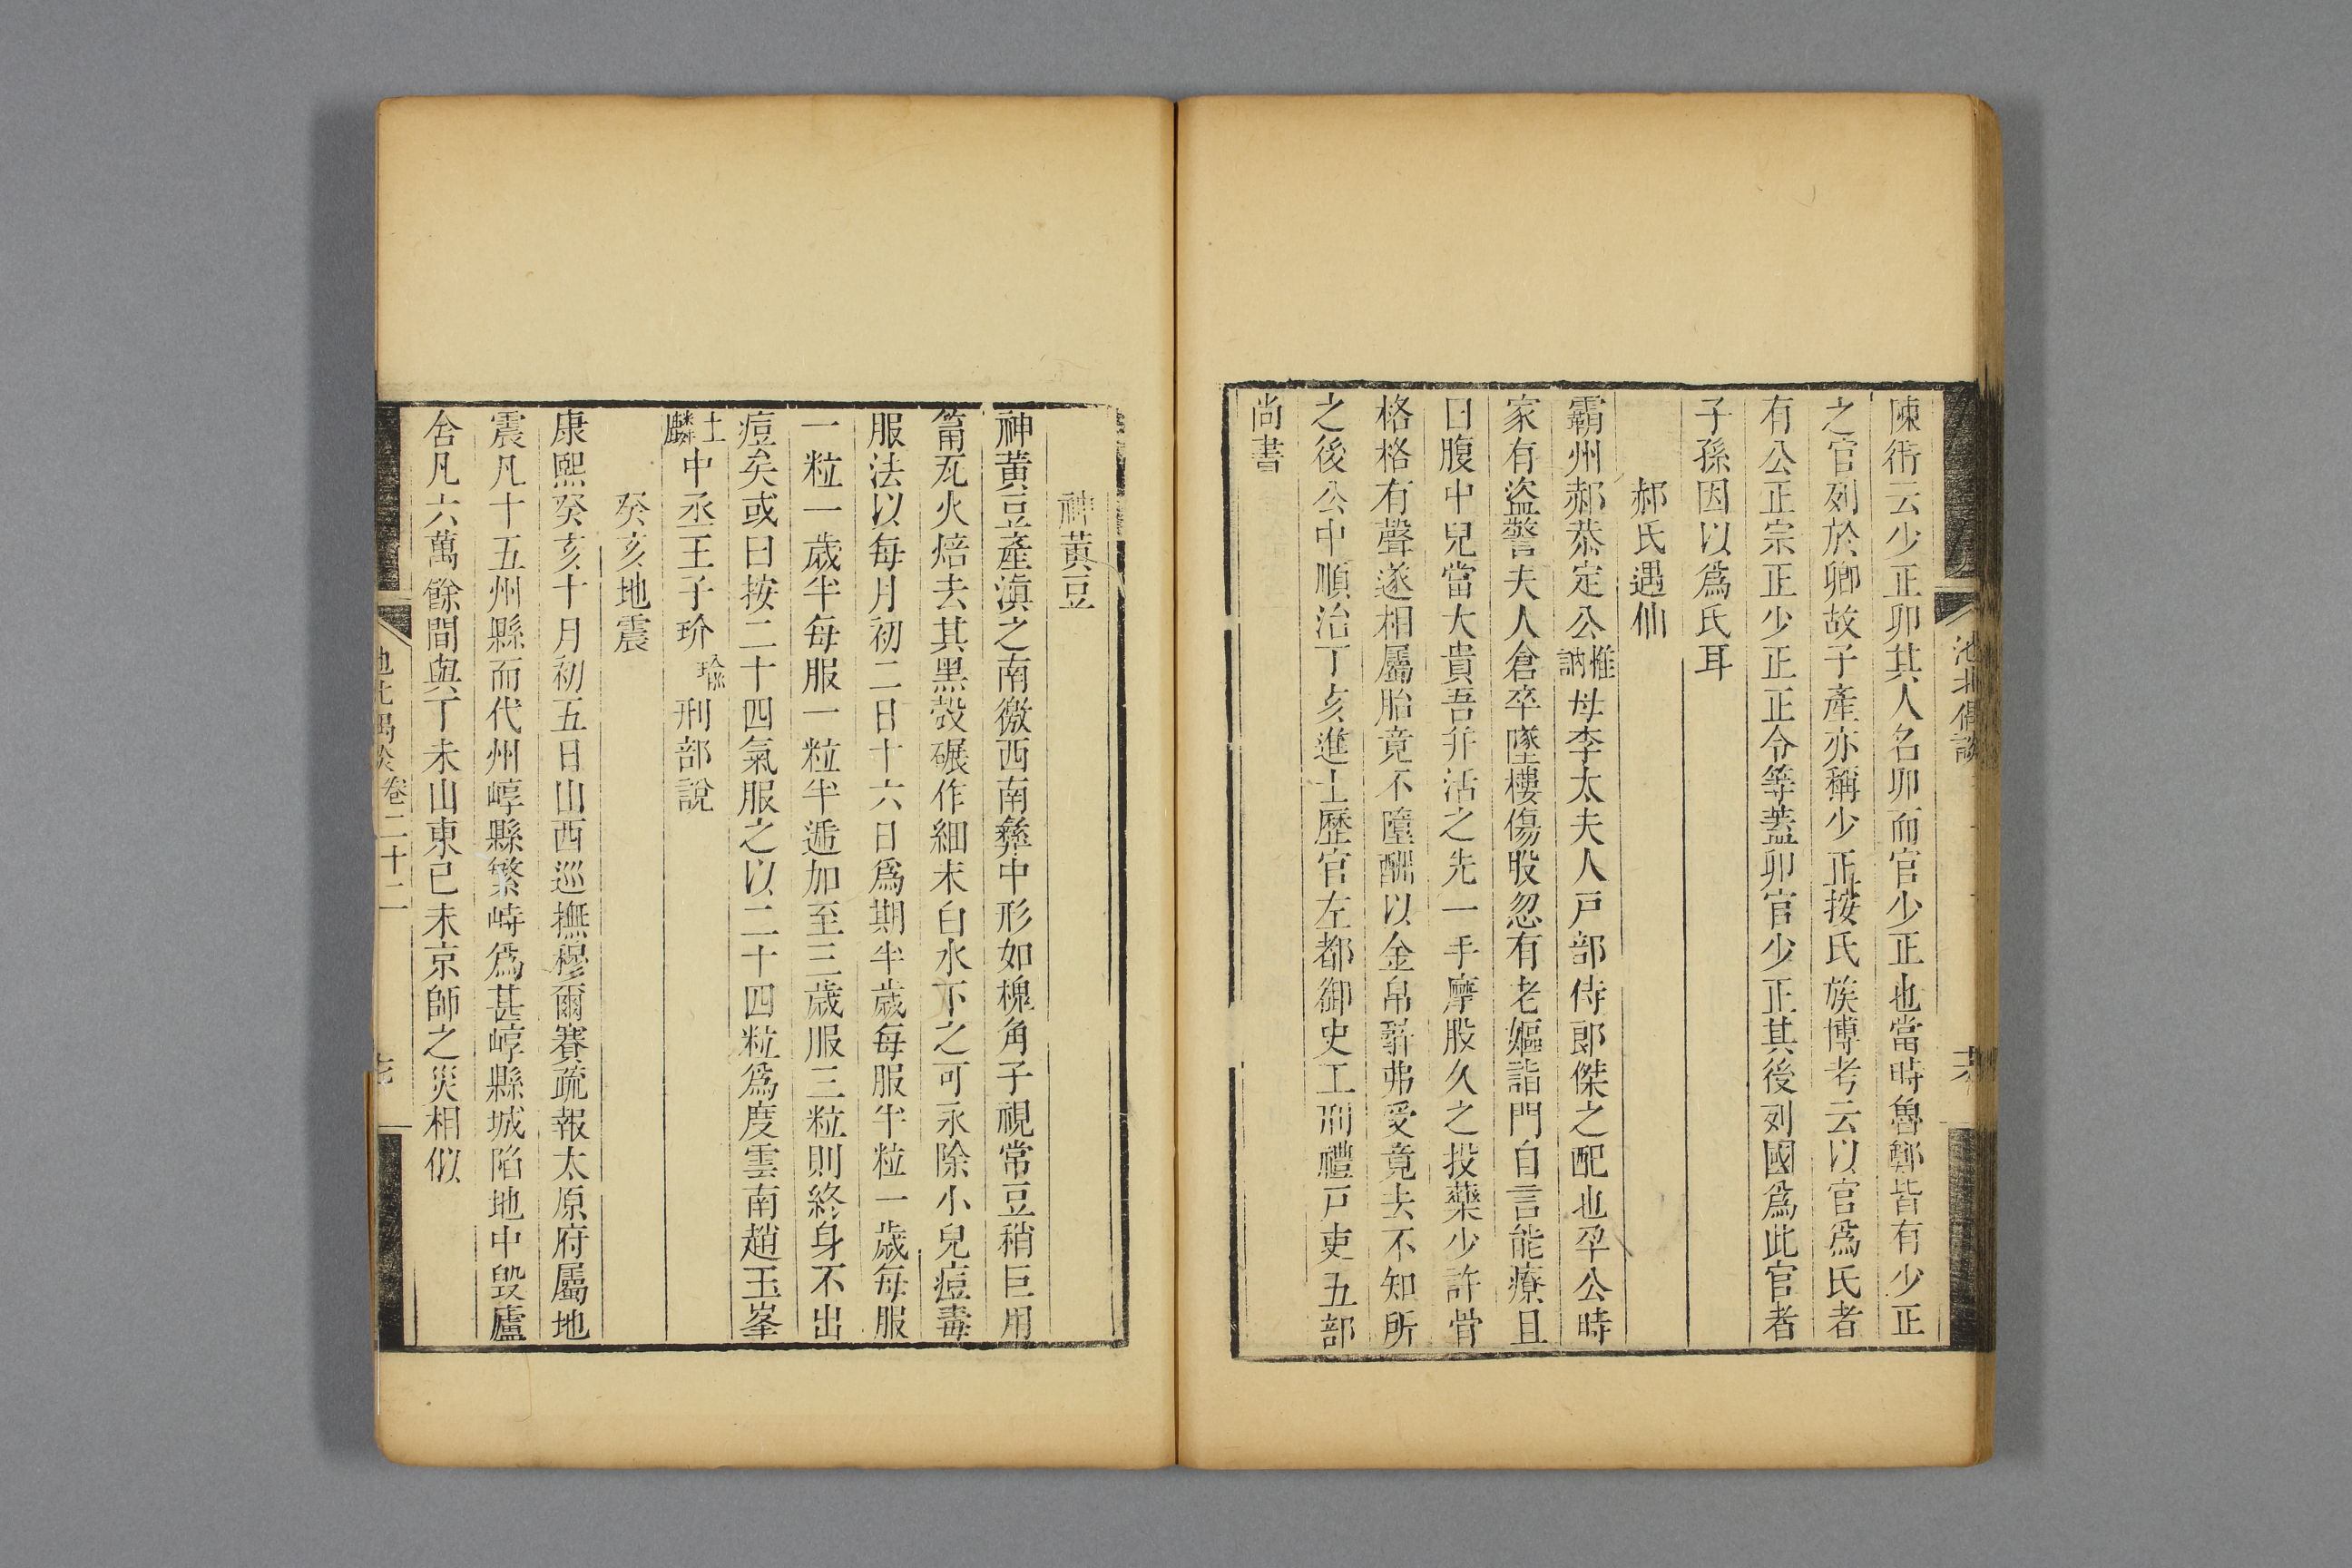 陳術云少正卯其人名卯而官少正也當時魯鄭皆有少正
之官列於卿故子產亦稱少正按氏族博考云以官爲氏者
有公正宗正少正正令等蓋卯官少正其後列國爲此官者
子孫因以爲氏耳
郝氏遇仙
霸州郝恭定公惟訥母李太夫人戸部侍郎傑之配也孕公時
家有盜警夫人倉卒墜樓傷股忽有老嫗詣門自言能療且
曰腹中兒當大貴吾并活之先一手摩股久之投藥少許骨
格格有聲遂相屬胎竟不墮酬以金帛辭弗受竟去不知所
之後公中順治丁亥進士歷官左都御史工刑禮戸吏五部
尚書
神黃豆
神黃豆產滇之南徼西南彝中形如槐角子視常豆稍巨用
筩瓦火焙去其黑殼碾作細末白水下之可永除小兒痘毒
服法以每月初二日十六日爲期半歲每服半粒一歲每服
一粒一歲半每服一粒半遞加至三歲服三粒則終身不出
痘矣或曰按二十四氣服之以二十四粒爲度雲南趙玉峯
士麟中丞王子玠瑜刑部說
癸亥地震
康熙癸亥十月初五日山西巡撫穆爾賽疏報太原府屬地
震凡十五州縣而代州崞縣繁峙爲甚崞縣城陷地中毀廬
舍凡六萬餘間與丁未山東己未京師之災相似
池北偶談
卷二十二